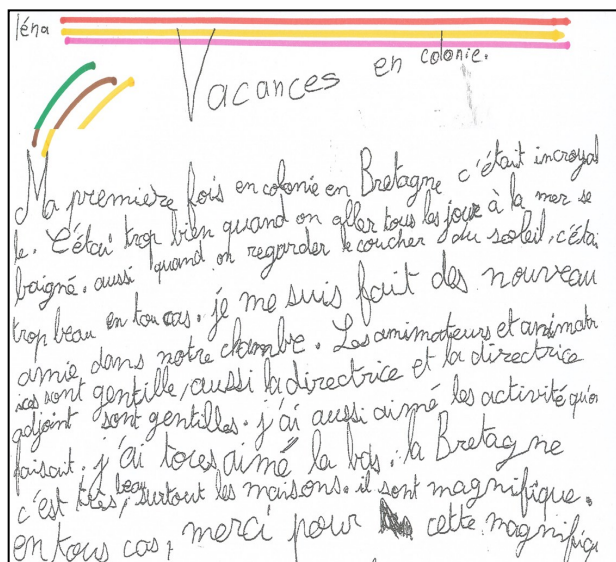 léna
Vacances en colonie.
Ma première fois en colonie en Bretagne c'était incroyal
le. C'étai trop bien quand on aller tous les jour à la mer se
baigné. aussi quand on regarder le coucher du soleil, c'étai
trop beau en tou cas. je me suis fait des nouveau
amie dans notre chambre. Les animateurs et animatr
ices sont gentille, aussi la directrice et la directrice
adjoint sont gentilles. j'ai aussi aimé les activité qu'on
faisait. j'ai aimé la bas. la Bretagne
c'est très beau, surtout les maisons. il sont magnifique.
en tous cas, merci pour cette magnifiqu